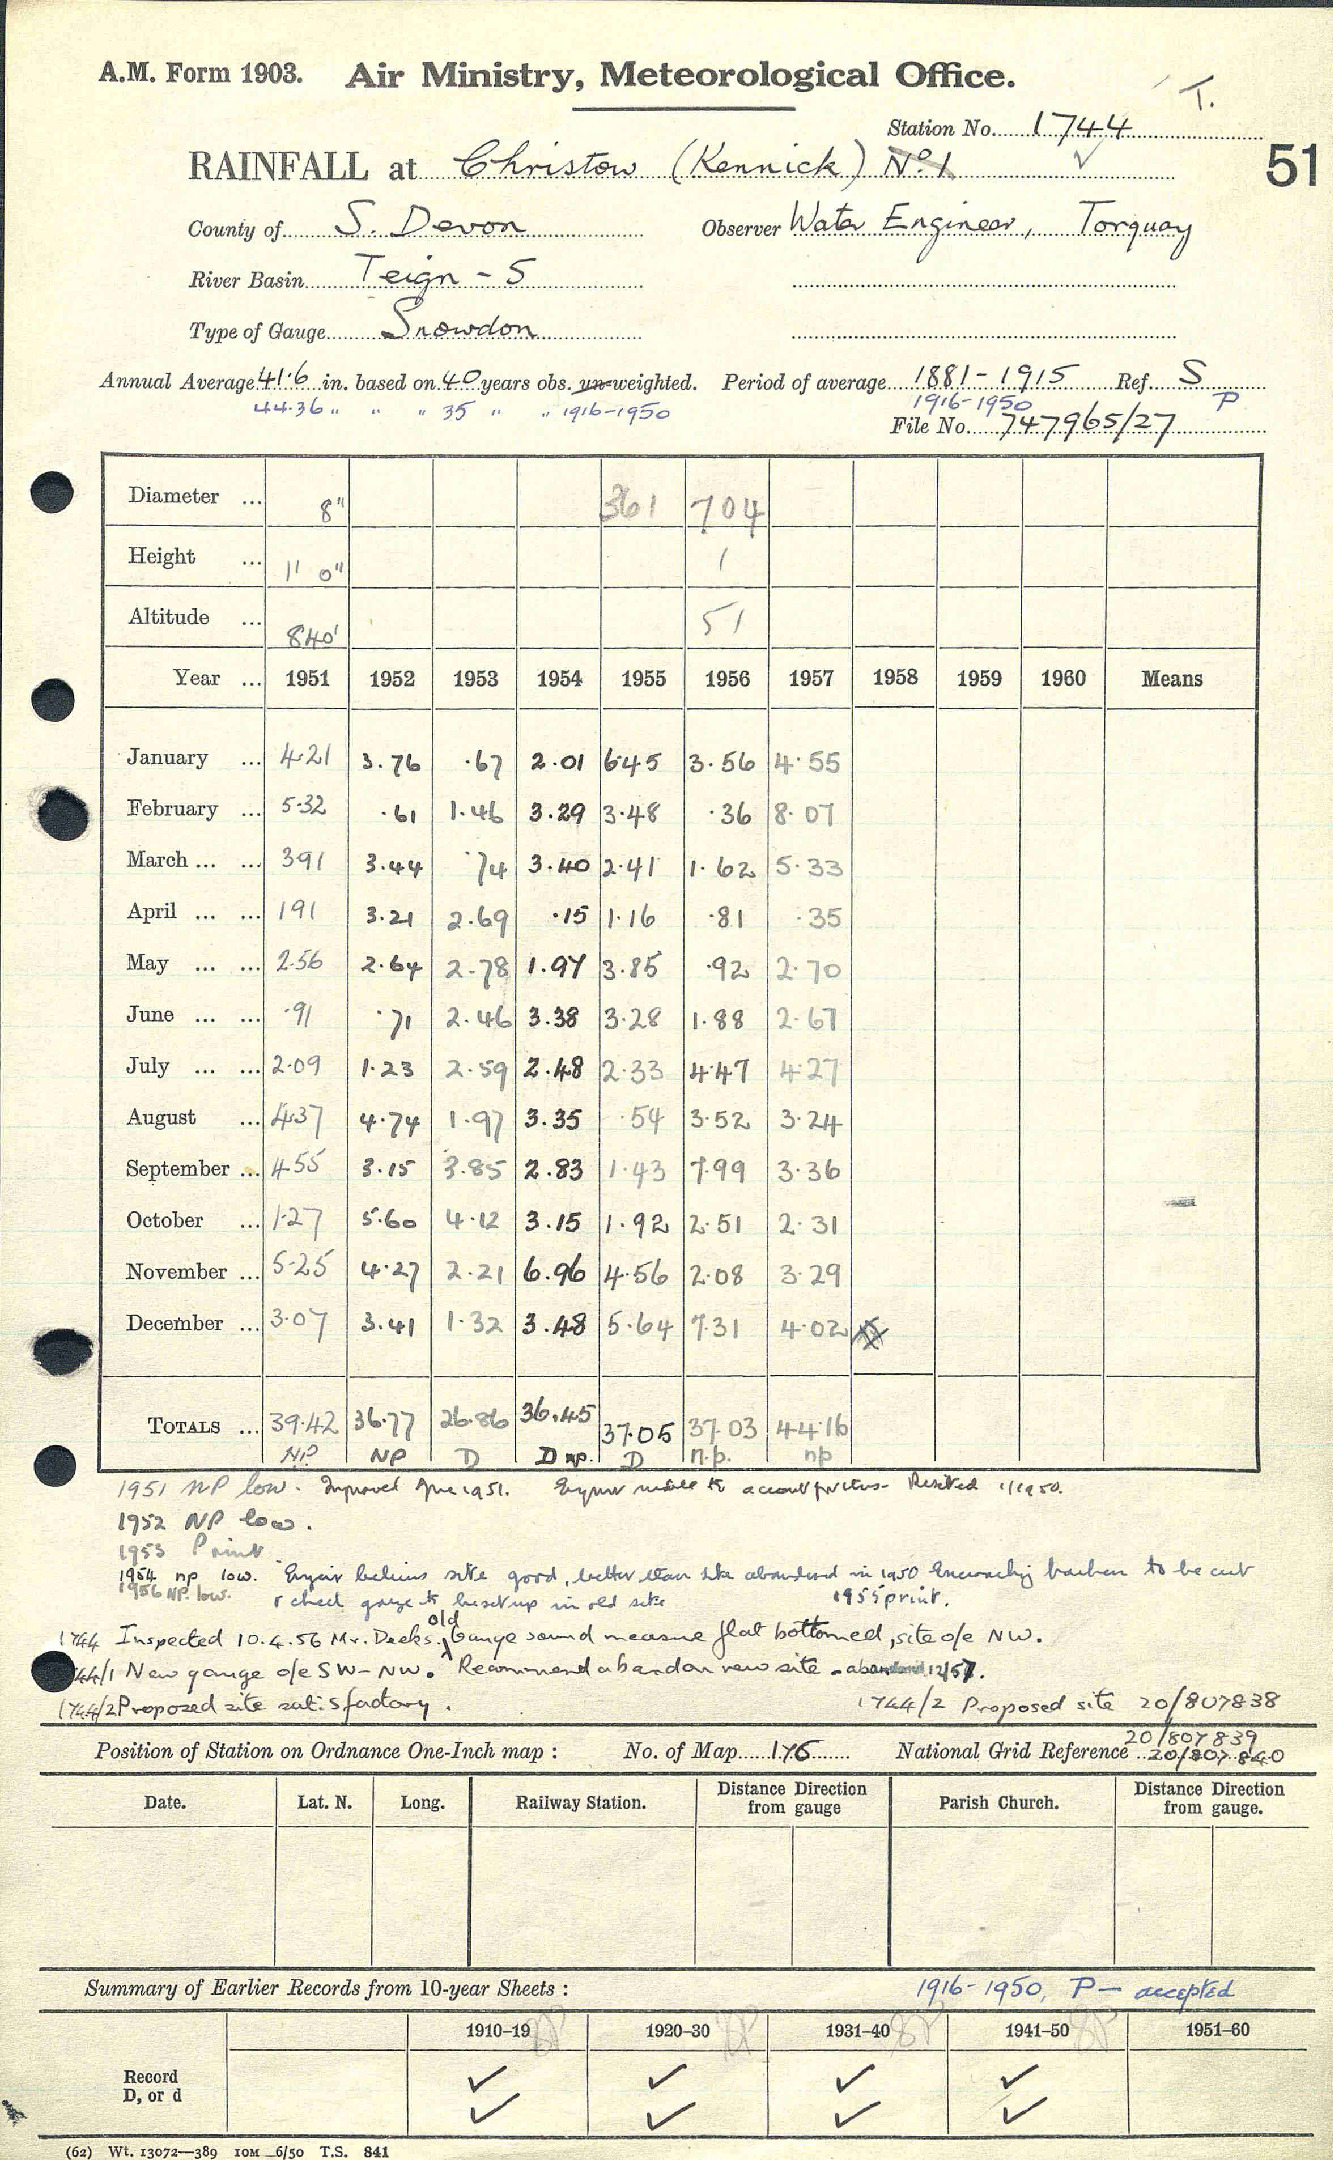 A.M. Form 1903. Air Ministry, Meteorological Office.
T.
Station No. 1744
RAINFALL at Christow (Kennick) No. 1
51
County of S. Devon Observer Water Engineer, Torquay
River Basin Teign - 5
Type of Gauge Snowdon
Annual Average 41.6 in. based on 40 years obs. un-weighted. Period of average 1881-1915 Ref. S
44.36 " " " 35 " " 1916-1950 1916-1950 P
File No. 747965/27
Diameter ... 8" 361 704
Height ... 1' 0" 1
Altitude ... 840' 51
Year ... 1951 1952 1953 1954 1955 1956 1957 1958 1959 1960 Means
January ... 4.21 3.76 .67 2.01 6.45 3.56 4.55
February ... 5.32 .61 1.46 3.29 3.48 .36 8.07
March ... ... 391 3.44 .74 3.40 2.41 1.62 5.33
April ... ... 191 3.21 2.69 .15 1.16 .81 .35
May ... ... 2.56 2.64 2.78 1.97 3.85 .92 2.70
June ... ... .91 .71 2.46 3.38 3.28 1.88 2.67
July ... ... 2.09 1.23 2.59 2.48 2.33 4.47 4.27
August ... 4.37 4.74 1.97 3.35 .54 3.52 3.24
September ... 4.55 3.15 3.85 2.83 1.43 7.99 3.36
October ... 1.27 5.60 4.12 3.15 1.92 2.51 2.31
November ... 5.25 4.27 2.21 6.96 4.56 2.08 3.29
December ... 3.07 3.41 1.32 3.48 5.64 7.31 4.02
TOTALS ... 39.42 36.77 26.86 36.45 37.05 37.03 44.16
NP NP D D np. D n.p. np
1951 NP low. Improved June 1951. Resited 1/1950.
1952 NP low.
1953 Print
1954 np low. Engineer believes site good, better than site abandoned in 1950 Encroaching to be cut
1956 NP. low. & check gauge to be set up in old site 1955 print.
1744 Inspected 10.4.56 Mr. Deeks. old Gauge sound measure flat bottomed, site o/e NW.
44/1 New gauge o/e SW-NW. Recommend abandon new site - abandoned 12/57.
1744/2 Proposed site satisfactory. 1744/2 Proposed site 20/807838
20/807839
Position of Station on Ordnance One-Inch map : No. of Map 176 National Grid Reference 20/807840
Date. Lat. N. Long. Railway Station. Distance from gauge Direction Parish Church. Distance from gauge. Direction
Summary of Earlier Records from 10-year Sheets : 1916-1950, P - accepted
1910-19 1920-30 1931-40 1941-50 1951-60
Record ✓ ✓ ✓ ✓
D, or d ✓ ✓ ✓ ✓
(62) Wt. 13072—389 10M 6/50 T.S. 841